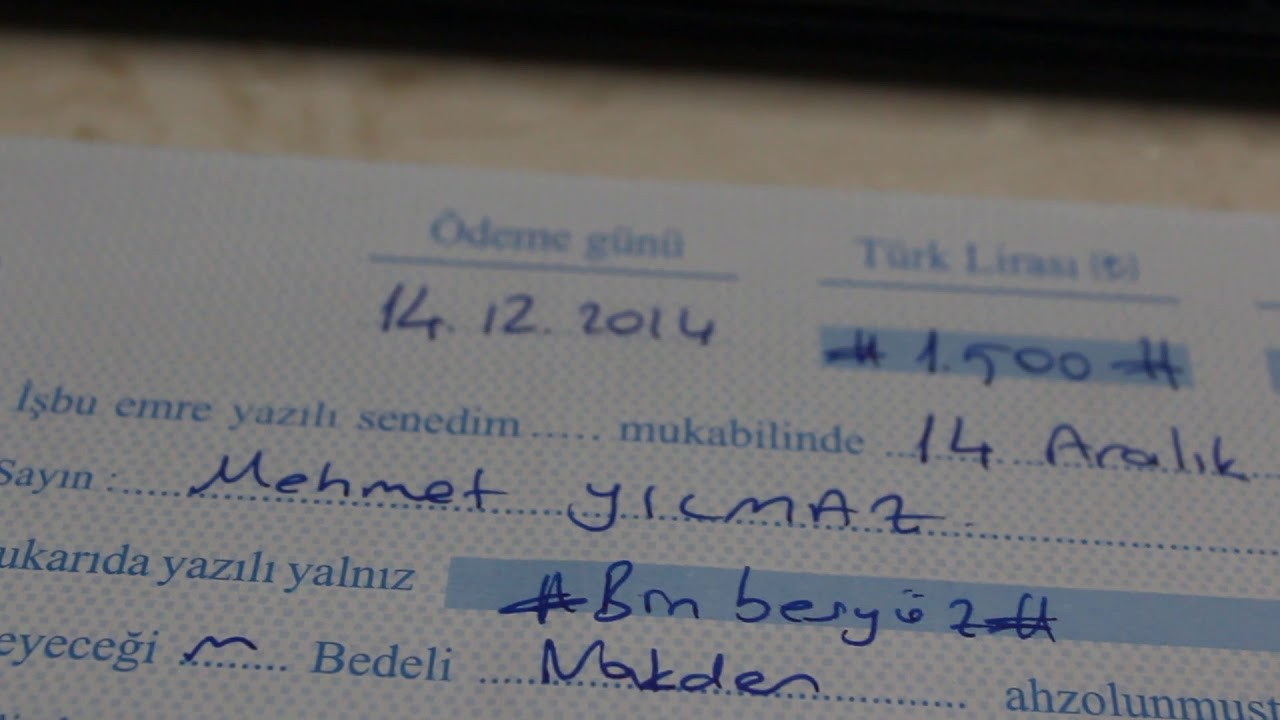 Ödeme günü Türk Lirası (₺)
14.12.2014 # 1.500 #
İşbu emre yazılı senedim ..... mukabilinde ..14 Aralık
Sayın :.....Mehmet YILMAZ.....
ukarıda yazılı yalnız # Bin beşyüz #
eyeceği ........ Bedeli .....Nakden............ ahzolunmuşt